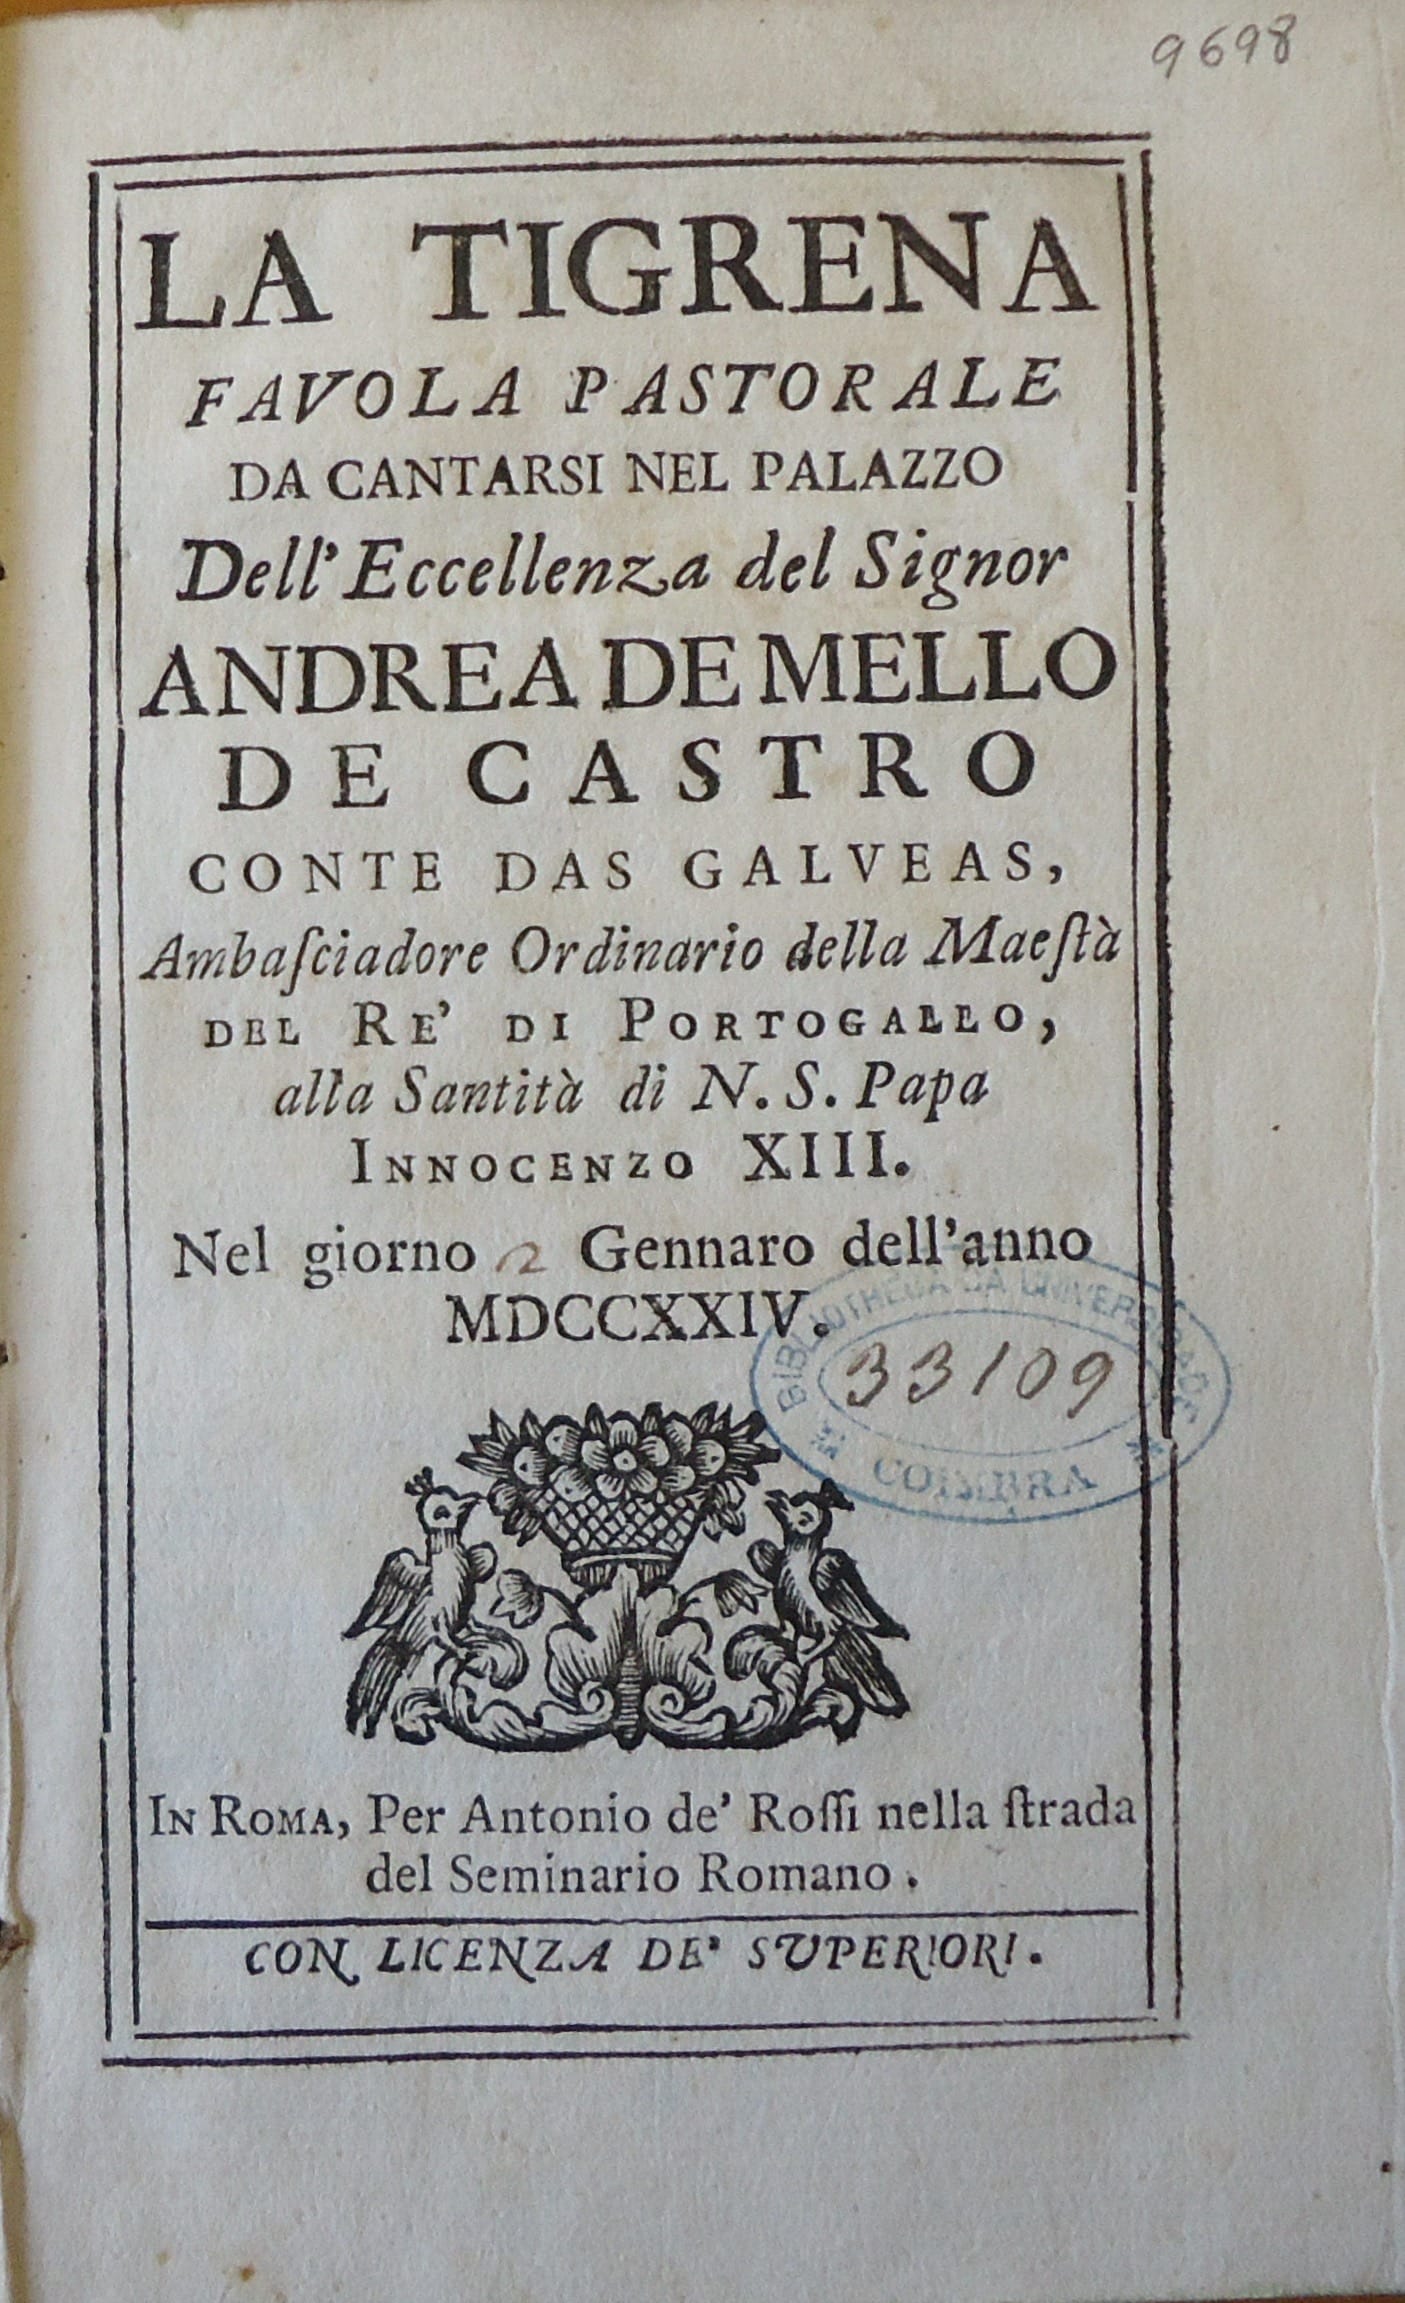 9698
LA TIGRENA
FAVOLA PASTORALE
DA CANTARSI NEL PALAZZO
Dell' Eccellenza del Signor
ANDREA DE MELLO
DE CASTRO
CONTE DAS GALVEAS,
Ambaſciadore Ordinario della Maeſtà
DEL RE' DI PORTOGALLO,
alla Santità di N. S. Papa
INNOCENZO XIII.
Nel giorno 2 Gennaro dell'anno
MDCCXXIV.
BIBLIOTHECA DA UNIVERSIDADE
33109
COIMBRA
IN ROMA, Per Antonio de' Roſſi nella ſtrada
del Seminario Romano.
CON LICENZA DE' SUPERIORI.